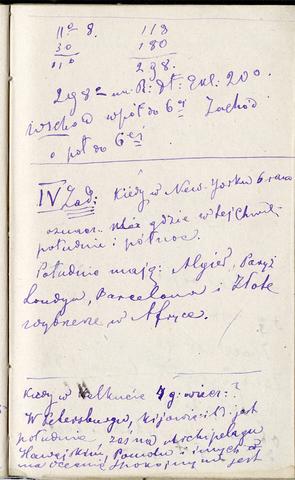 11° 8. 118
30 180
11° 298.
298° na R: dł: Ekl. 20°.
wschód w pół do 6ej Zachód
o pół do 6ej
IV Zad: Kiedy w New-Yorku 6 rano
oznacz. gdzie w tej chwili
południe i północ.
Południe mają: Algier, Paryż
Londyn, Barcelona i Złote
wybrzeże w Afryce.
Kiedy w Kalkucie 4 g: wiecz:?
W Petersburgu, Kijowie i t: jest
południe, zaś na Archipelagu
Hawajskim, Pomotu i innych
na oceanie Spokojnym jest